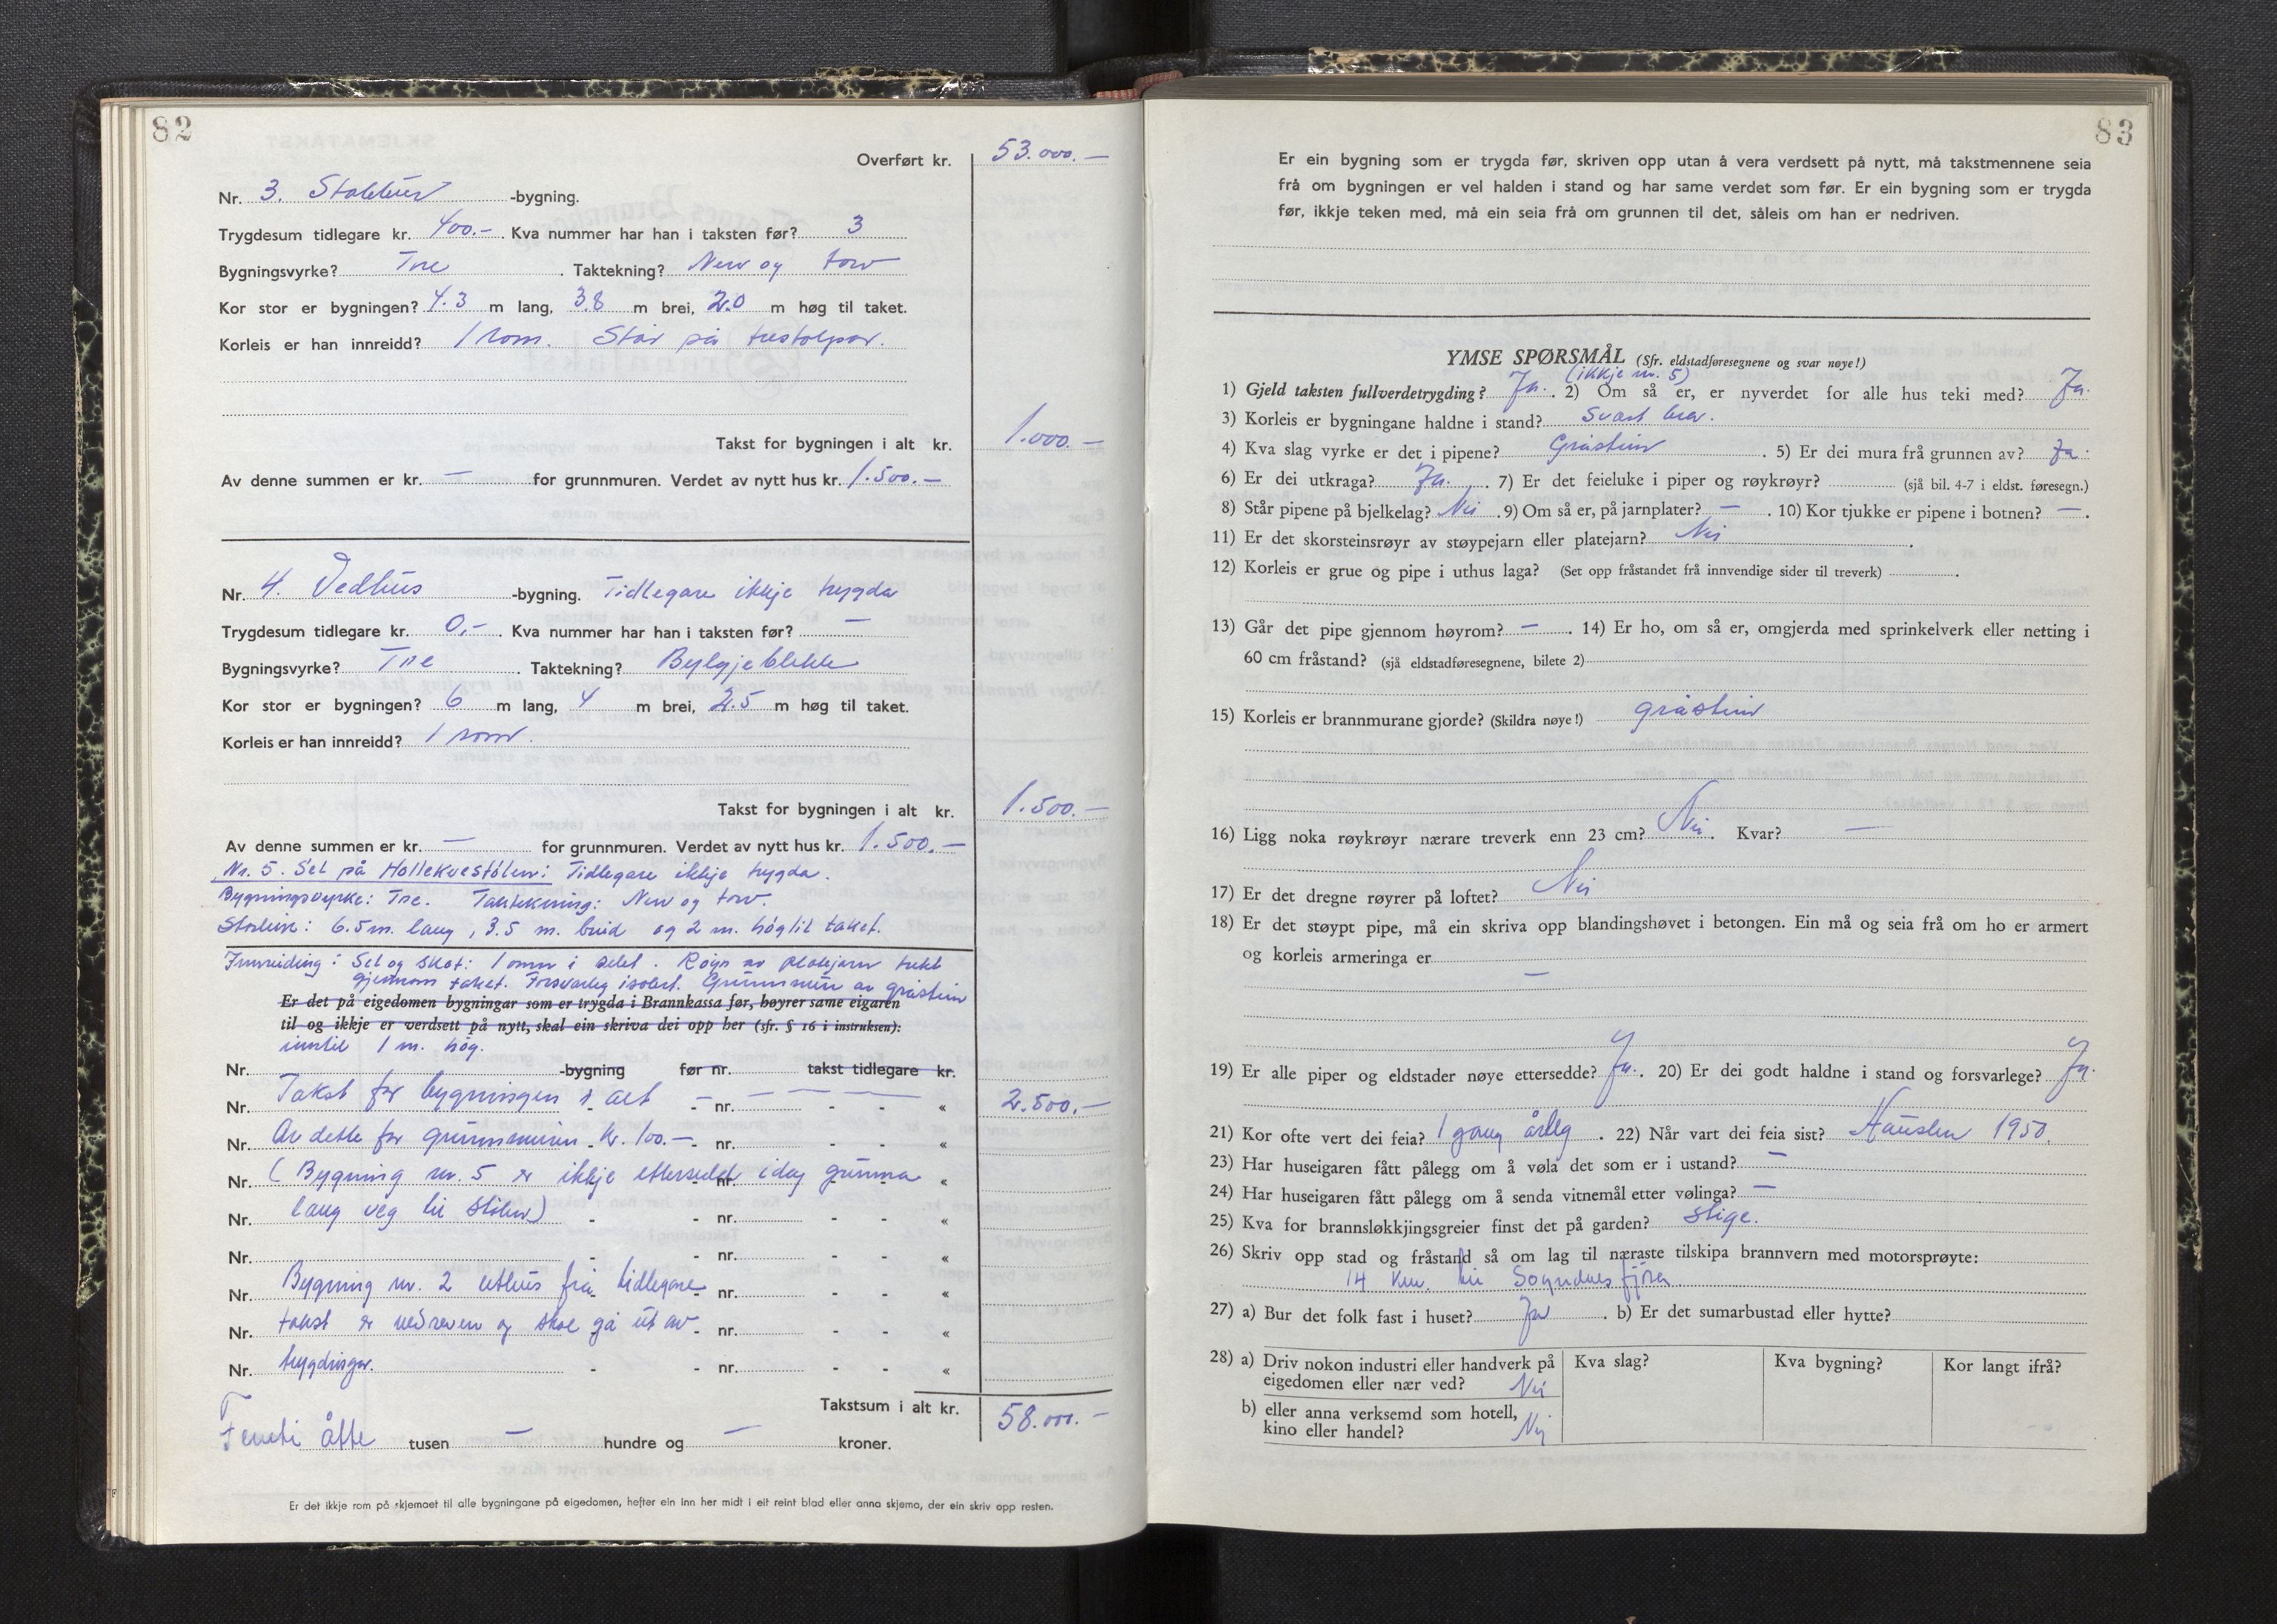 82
Overført kr. 53.000.—
Nr. 3. Stabbur -bygning.
Trygdesum tidlegare kr. 400.— . Kva nummer har han i taksten før? 3
Bygningsvyrke? Tre . Taktekning? Never og torv
Kor stor er bygningen? 4.3 m lang, 3.8 m brei, 2.0 m høg til taket.
Korleis er han innreidd? 1 rom. Står på trestolpar.
Takst for bygningen i alt kr. 1.000.—
Av denne summen er kr. — for grunnmuren. Verdet av nytt hus kr. 1.500.—
Nr. 4. Vedhus -bygning. Tidlegare ikkje trygda
Trygdesum tidlegare kr. 0.— . Kva nummer har han i taksten før? —
Bygningsvyrke? Tre . Taktekning? Bylgjeblekk
Kor stor er bygningen? 6 m lang, 4 m brei, 2.5 m høg til taket.
Korleis er han innreidd? 1 rom.
Takst for bygningen i alt kr. 1.500.—
Av denne summen er kr. — for grunnmuren. Verdet av nytt hus kr. 1.500.—
Nr. 5. Sel på Hollekvestölen: Tidlegare ikkje trygda.
Bygningsvyrke: Tre. Taktekning: Never og torv.
6.5 m. lang, 3.5 m. breid og 2 m. høg til taket.
Innreiding: Sel og skot: 1 omn i selet. Røyr av platejarn trekt
gjennom taket. Forsvarleg isolert. Grunnmur av gråstein
Er det på eigedomen bygningar som er trygda i Brannkassa før, høyrer same eigaren
til og ikkje er verdsett på nytt, skal ein skriva dei opp her (sfr. § 16 i instruksen):
inntil 1 m. høg.
Nr. -bygning før nr. takst tidlegare kr.
Nr. Takst for bygningen i alt - nr. — - - « 2.500.—
Nr. Av dette for grunnmuren - kr. 100.— - nr. - - «
Nr. (Bygning nr. 5 er ikkje ettersedd idag grunna - nr. - - «
Nr. lang veg til stölen) - - nr. - - «
Nr. - - nr. - - «
Nr. Bygning nr. 2 uthus frå tidlegare - - nr. - - «
Nr. takst er nedreven og skal gå ut av - - nr. - - «
Nr. trygdinga. - - nr. - - «
Takstsum i alt kr. 58.000.—
Femti åtte tusen — hundre og — kroner.
Er det ikkje rom på skjemaet til alle bygningane på eigedomen, hefter ein inn her midt i eit reint blad eller anna skjema, der ein skriv opp resten.
83
Er ein bygning som er trygda før, skriven opp utan å vera verdsett på nytt, må takstmennene seia
frå om bygningen er vel halden i stand og har same verdet som før. Er ein bygning som er trygda
før, ikkje teken med, må ein seia frå om grunnen til det, såleis om han er nedriven.
YMSE SPØRSMÅL (Sfr. eldstadføresegnene og svar nøye!)
(ikkje nr. 5)
1) Gjeld taksten fullverdetrygding? Ja. . 2) Om så er, er nyverdet for alle hus teki med? Ja.
3) Korleis er bygningane haldne i stand? Svært bra.
4) Kva slag vyrke er det i pipene? Gråstein . 5) Er dei mura frå grunnen av? Ja.
6) Er dei utkraga? Ja. . 7) Er det feieluke i piper og røykrøyr? (sjå bil. 4-7 i eldst. føresegn.)
8) Står pipene på bjelkelag? Nei . 9) Om så er, på jarnplater? — . 10) Kor tjukke er pipene i botnen? — .
11) Er det skorsteinsrøyr av støypejarn eller platejarn? Nei .
12) Korleis er grue og pipe i uthus laga? (Set opp fråstandet frå innvendige sider til treverk) .
13) Går det pipe gjennom høyrom? — . 14) Er ho, om så er, omgjerda med sprinkelverk eller netting i
60 cm fråstand? (sjå eldstadføresegnene, bilete 2)
15) Korleis er brannmurane gjorde? (Skildra nøye!) gråstein
16) Ligg noka røykrøyr nærare treverk enn 23 cm? Nei . Kvar? —
17) Er det dregne røyrer på loftet? Nei
18) Er det støypt pipe, må ein skriva opp blandingshøvet i betongen. Ein må og seia frå om ho er armert
og korleis armeringa er
—
19) Er alle piper og eldstader nøye ettersedde? Ja. . 20) Er dei godt haldne i stand og forsvarlege? Ja.
21) Kor ofte vert dei feia? 1 gang årleg . 22) Når vart dei feia sist? Hausten 1950.
23) Har huseigaren fått pålegg om å vøla det som er i ustand? —
24) Har huseigaren fått pålegg om å senda vitnemål etter vølinga? —
25) Kva for brannsløkkjingsgreier finst det på garden? Stige.
26) Skriv opp stad og fråstand så om lag til næraste tilskipa brannvern med motorsprøyte:
14 km. til Sogndalsfjöra.
27) a) Bur det folk fast i huset? Ja . b) Er det sumarbustad eller hytte?
28) a) Driv nokon industri eller handverk på eigedomen eller nær ved? Nei Kva slag? Kva bygning? Kor langt ifrå?
b) eller anna verksemd som hotell, kino eller handel? Nei